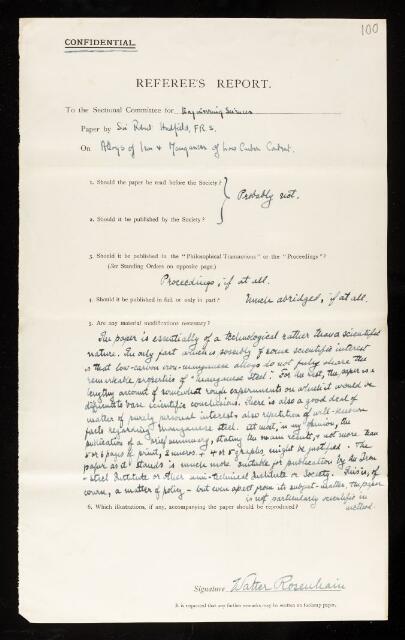 100
CONFIDENTIAL.
REFEREE'S REPORT.
To the Sectional Committee for Engineering Sciences
Paper by Sir Robert Hadfield, F.R.S.
On Alloys of Iron & Manganese of Low Carbon Content.
1. Should the paper be read before the Society?
Probably not.
2. Should it be published by the Society?
3. Should it be published in the "Philosophical Transactions" or the "Proceedings"?
(See Standing Orders on opposite page.)
Proceedings, if at all.
4. Should it be published in full or only in part? Much abridged, if at all.
5. Are any material modifications necessary?
The paper is essentially of a technological rather than a scientific
nature. The only part which is possibly of some scientific interest
is that low-carbon iron-manganese alloys do not fully share the
remarkable properties of "manganese steel". For the rest, the paper is a
lengthy account of somewhat rough experiments on which it would be
difficult to base scientific conclusions. There is also a good deal of
matter of purely personal interest & also repetition of well-known
facts regarding manganese steel. At most, in my opinion, the
publication of a brief summary, stating the main results, & not more than
5 or 6 pages of print, 2 micros. & 4 or 5 graphs, might be justified. The
paper as it stands is much more suitable for publication by the Iron
& Steel Institute or other semi-technical Institute or Society. This is, of
course, a matter of policy - but even apart from its subject-matter, the paper
is not particularly scientific in
6. Which illustrations, if any, accompanying the paper should be reproduced? method.
Signature Walter Rosenhain
It is requested that any further remarks may be written on foolscap paper.